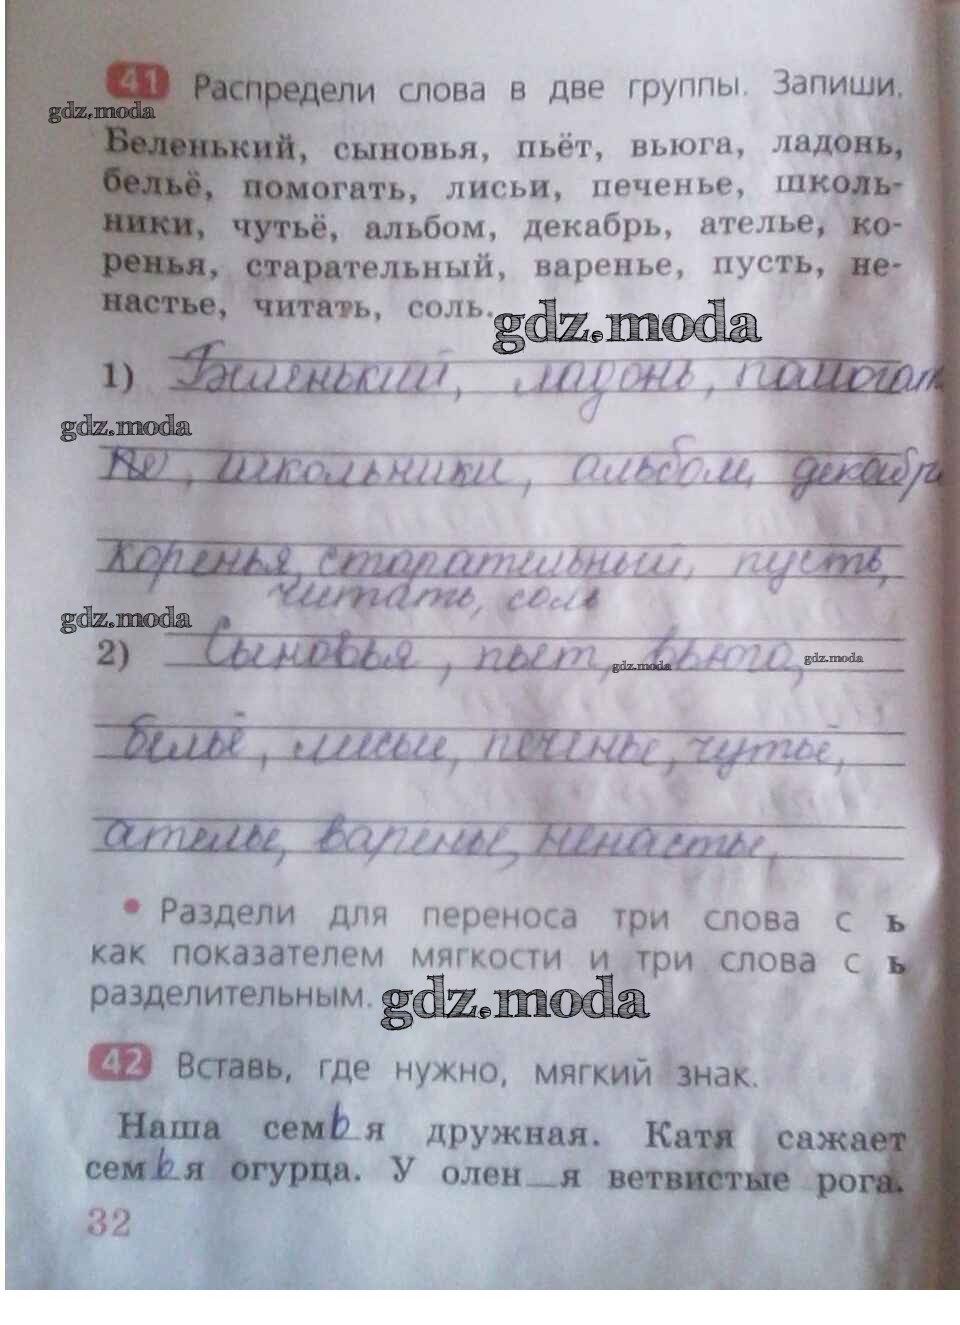 41 Распредели слова в две группы. Запиши.
gdz.moda
Беленький, сыновья, пьёт, вьюга, ладонь,
бельё, помогать, лисьи, печенье, школь-
ники, чутьё, альбом, декабрь, ателье, ко-
ренья, старательный, варенье, пусть, не-
настье, читать, соль.
gdz.moda
1) Беленький, ладонь, помогат
gdz.moda
школьники, альбом, декабрь
коренья, старательный, пусть,
читать, соль
gdz.moda
2) Сыновья, пьёт, вьюга,
gdz.moda gdz.moda
бельё, лисьи, печенье, чутьё,
ателье, варенье, ненастье,
• Раздели для переноса три слова с ь
как показателем мягкости и три слова с ь
разделительным.
gdz.moda
42 Вставь, где нужно, мягкий знак.
Наша семья дружная. Катя сажает
семья огурца. У олен_я ветвистые рога.
32